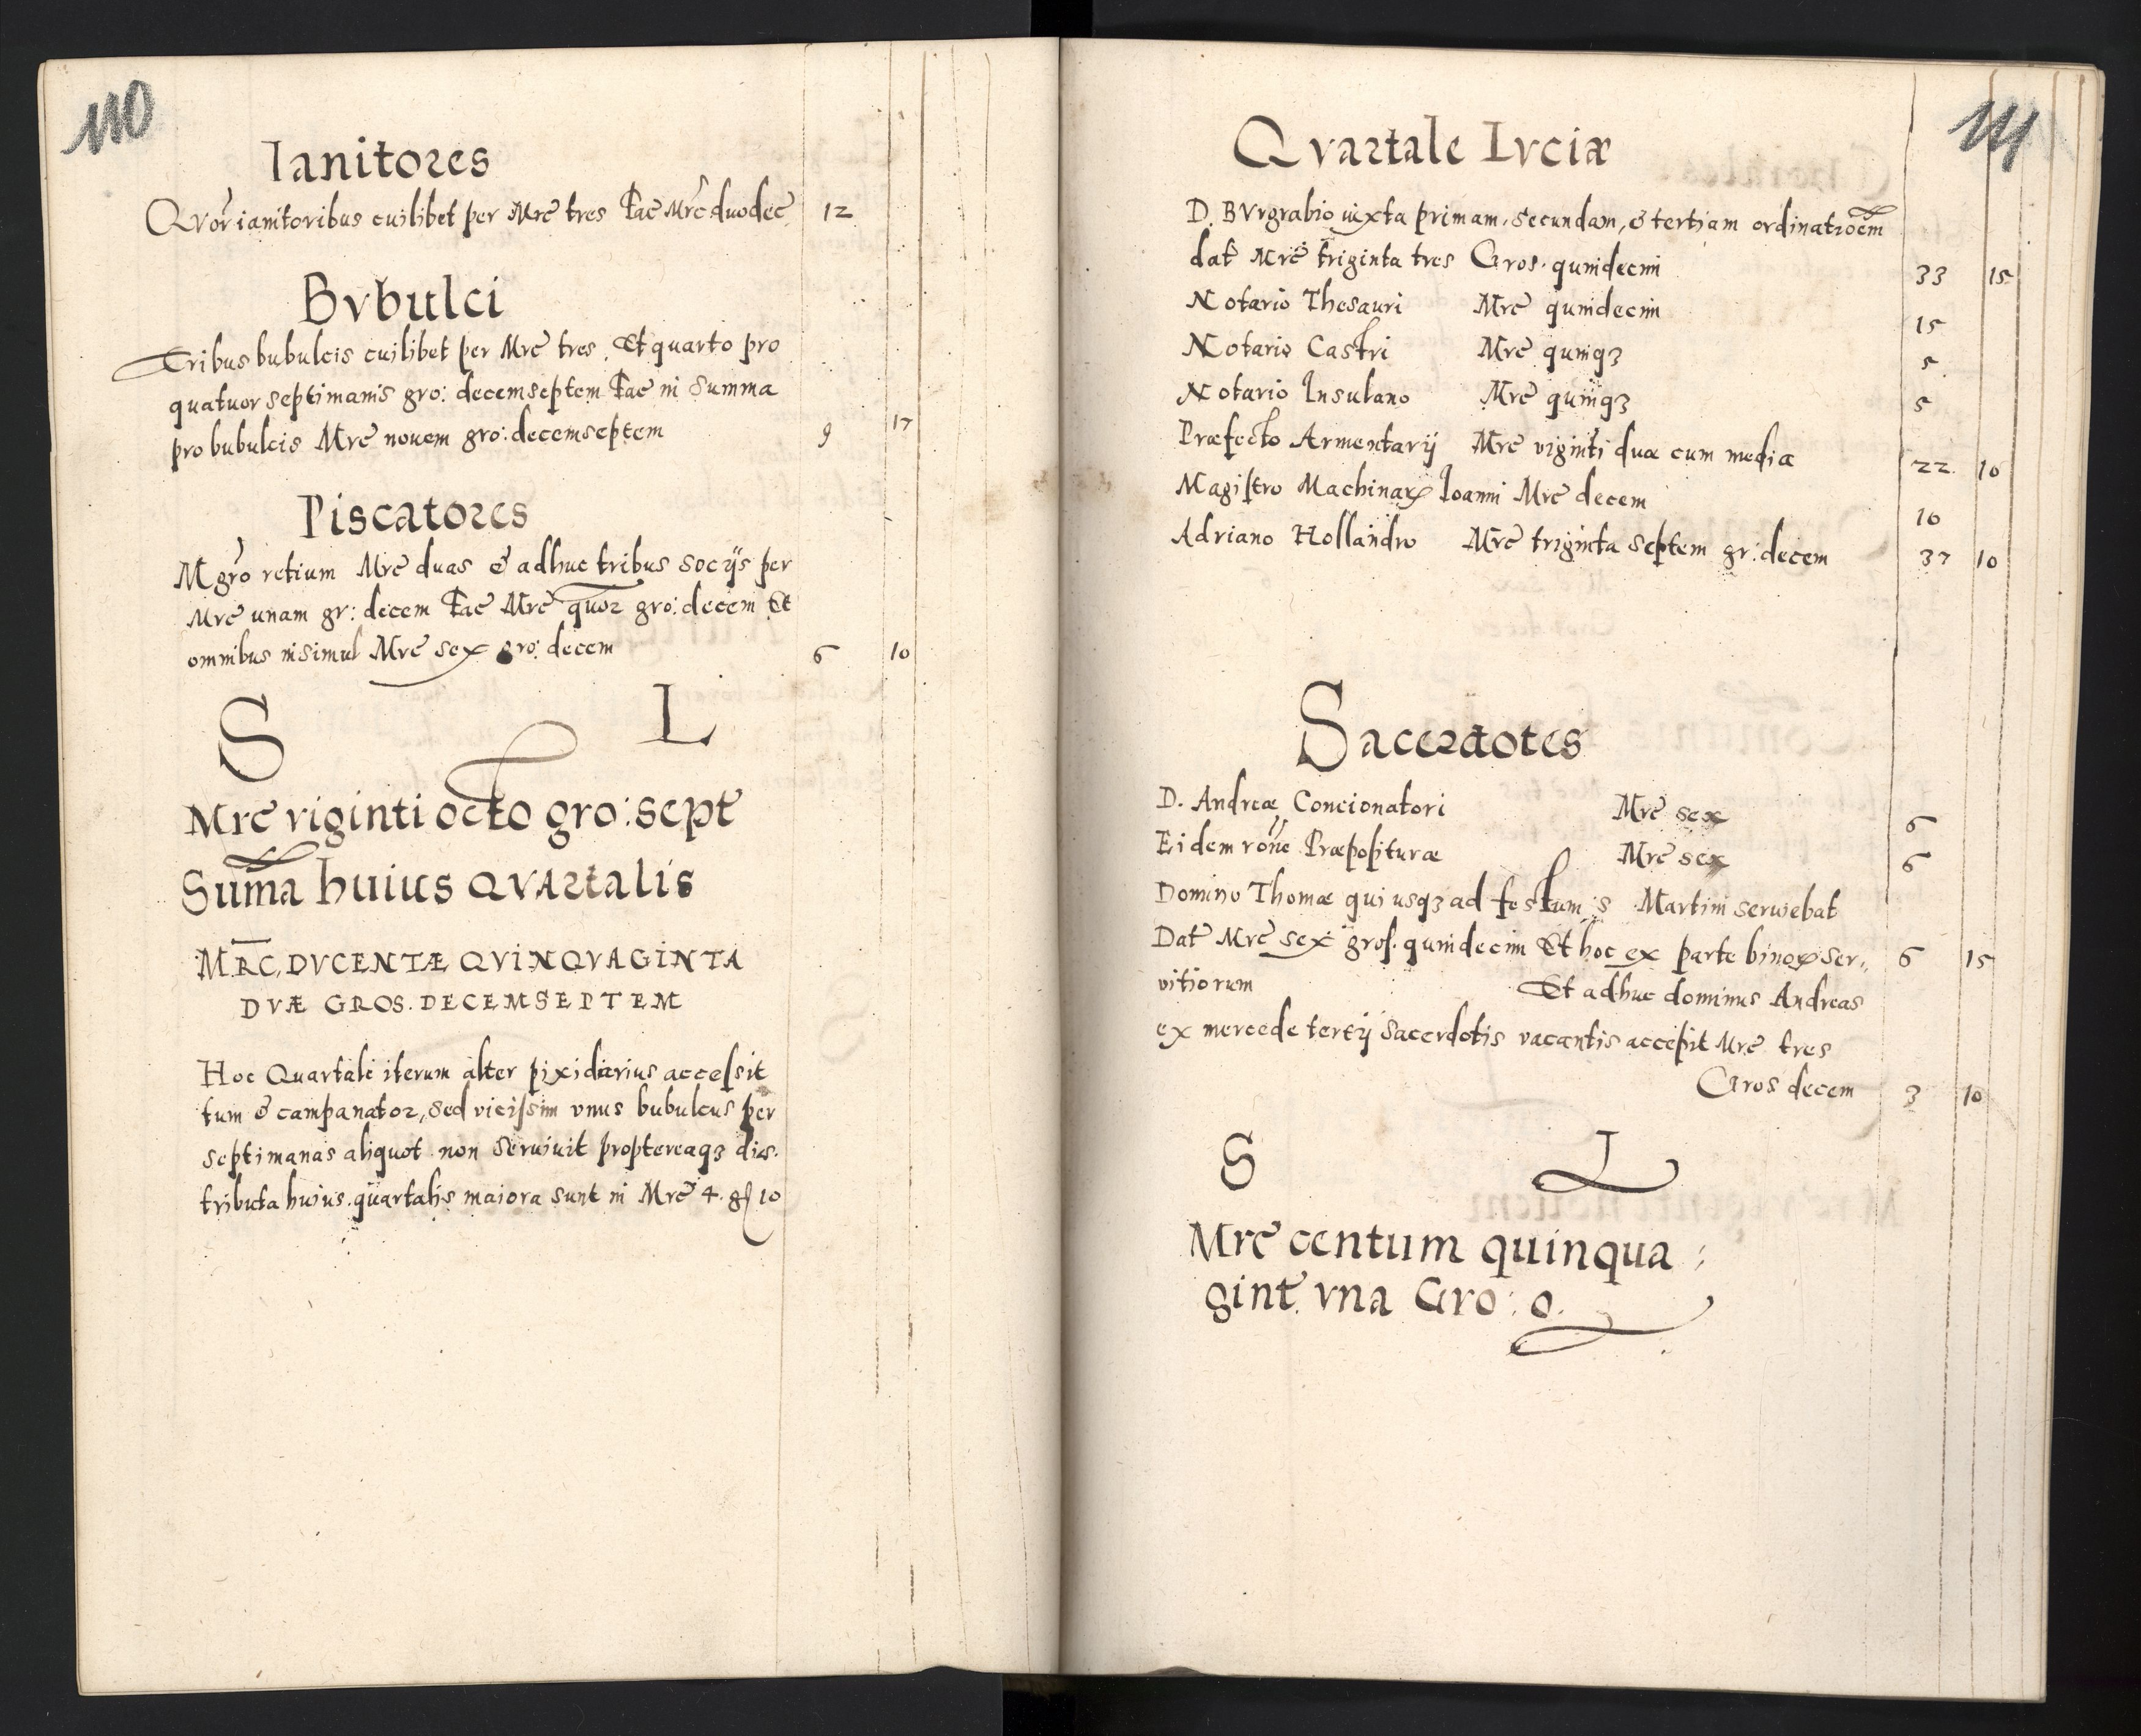 110
Ianitores
Qvor ianitoribus cuilibet per Mrc tres Fac Mrc duodec 12
Bvbulci
Tribus bubulcis cuilibet per Mrc tres. Et quarto pro
quatuor septimanis gro: decemseptem Fac in Summa
pro bubulcis Mrc nouem gro: decemseptem 9 17
Piscatores
Mgro retium Mrc duas & adhuc tribus socijs per
Mrc unam gr: decem Fac Mrc quor gro: decem Et
omnibus insimul Mrc sex gro: decem 6 10
S L
Mrc viginti octo gro: sept
Suma huius QVARtalis
MRC, DVCENTÆ QVINQVAGINTA
DVÆ GROS. DECEMSEPTEM
Hoc Quartali iterum alter pixidarius accessit
tum & campanator, Sed vicissim vnus bubulcus per
septimanas aliquot non Seruiuit proptereaqȝ dis-
tributa huius quartalis maiora sunt in Mrc 4. gſ 10
111
Qvartale Lvciæ
D. BVrgrabio iuxta primam, secundam, & tertiam ordinatioem
dat Mrc triginta tres Gros. quindecim 33 15
Notario Thesauri Mrc quindecim 15
Notario Castri Mrc quinqȝ 5
Notario Insulano Mrc quinqȝ 5
Præfecto Armentarij Mrc viginti duæ cum media 22 10
Magistro Machinaꝝ Ioanni Mrc decem 10
Adriano Hollandro Mrc triginta septem gr: decem 37 10
Sacerdotes
D. Andreæ Concionatori Mrc sex 6
Eidem rone Præposituræ Mrc sex 6
Domino Thomæ qui usqȝ ad festum S. Martini seruiebat
Dat Mrc sex gros. quindecim Et hoc ex parte binoꝝ Ser- 6 15
vitiorum Et adhuc dominus Andreas
ex mercede tertij Sacerdotis vacantis accepit Mrc tres
Gros decem 3 10
S L
Mrc centum quinqua:
gint. vna Gro: 0.